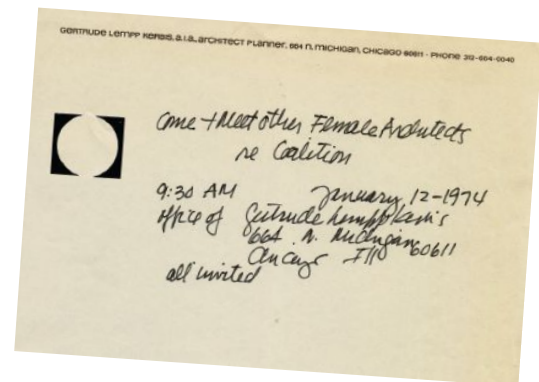 Gertrude Lempp Kerbis, a.i.a., architect planner, 664 n. michigan, chicago 60611 - phone 312-664-0040
Come + Meet other Female Architects
re Coalition
9:30 AM January 12-1974
office of Gertrude Lempp Kerbis
664 N. Michigan
Chicago Ill 60611
all invited